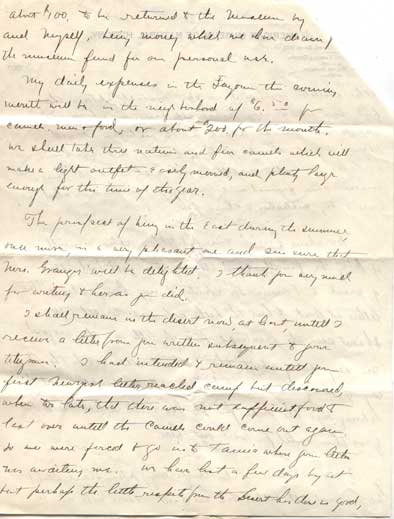 about $700, to be returned to the Museum by
and myself, being money which we have drawn
the museum fund for our personal use.
My daily expenses in the Fayoum the coming
month will be in the neighborhood of $6.50 for
camels, men & food, or about $200 for the month.
We shall take three natives and five camels which will
make a light outfit - easily moved, and plenty large
enough for this time of the year.
The prospect of being in the East during the summer,
once more, is a very pleasant one and I am sure that
Mrs. Granger will be delighted. I thank you very much
for writing to her as you did.
I shall remain in the desert now, at least, until I
receive a letter from you written subsequent to your
I had intended to remain until your
first letter reached camp but discovered,
when too late, that there was not sufficient food to
last over until the camels could come out again
so we were forced to go in to Tamia where your letter
was awaiting me. We have lost a few days by it
but perhaps the little respite from the desert has done us good,